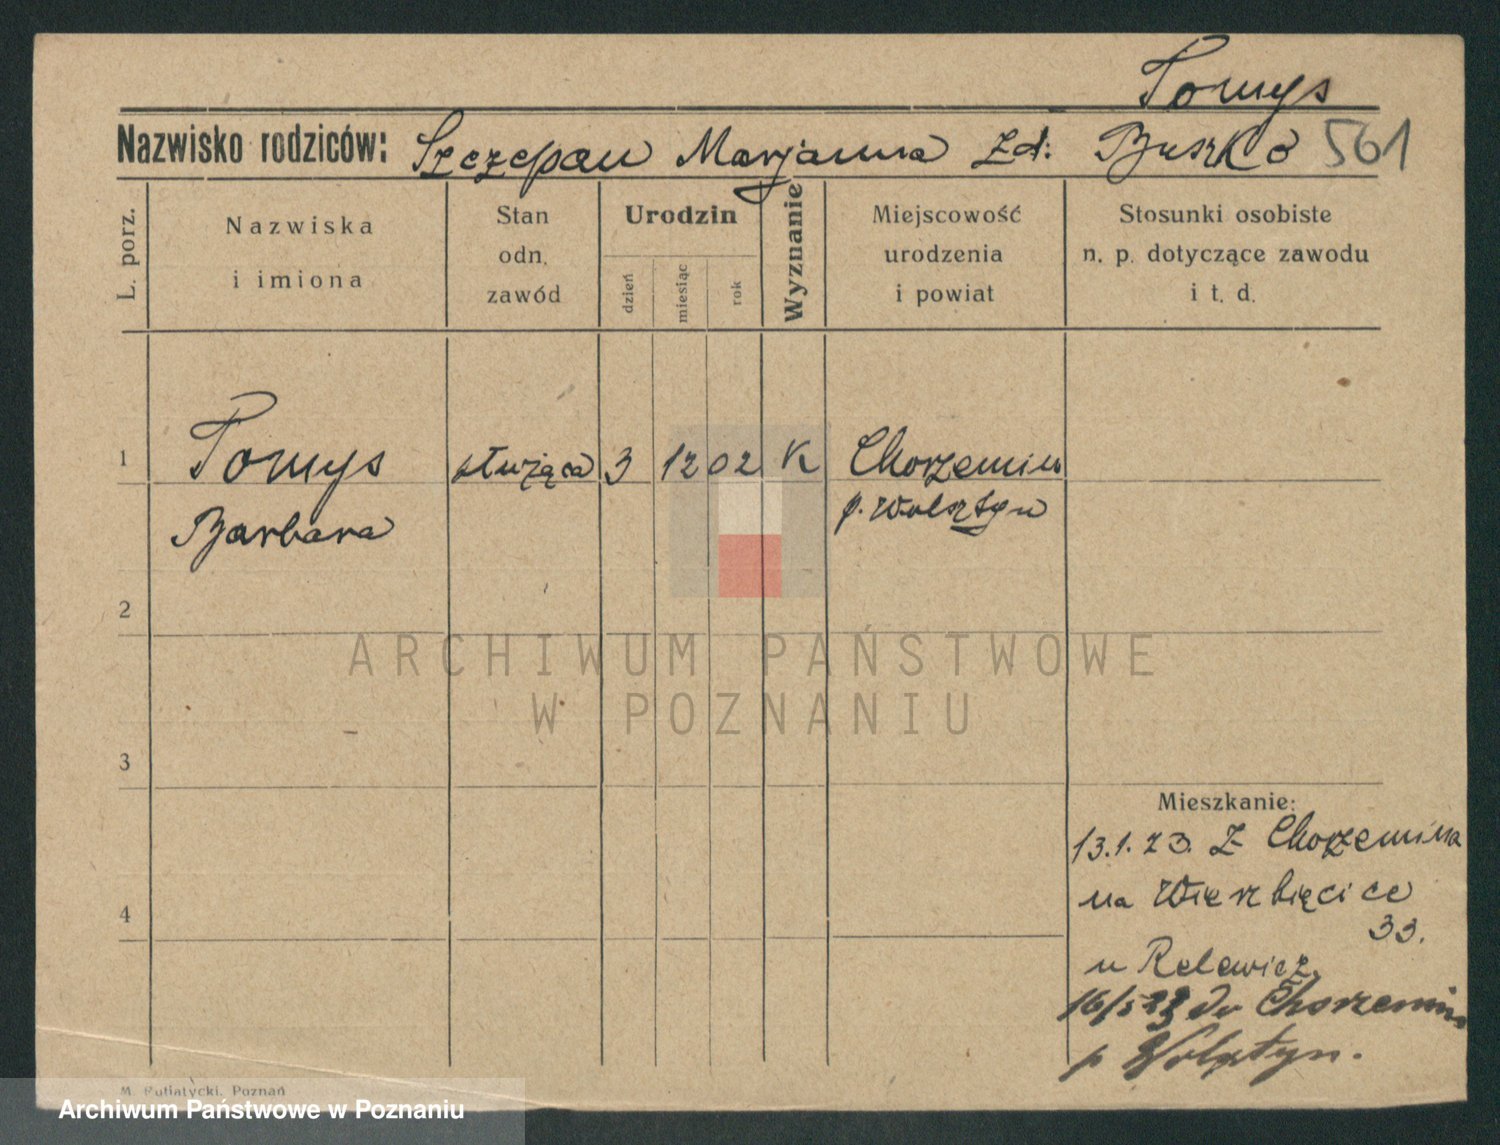 Tomys
Nazwisko rodziców: Szczepan Marjanna Zd: Buszko 561
L. porz.
Nazwiska
i imiona
Stan
odn.
zawód
Urodzin
dzień
miesiąc
rok
Wyznanie
Miejscowość
urodzenia
i powiat
Stosunki osobiste
n. p. dotyczące zawodu
i t. d.
1 Tomys służąca 3 12 02 K Chorzemin
Barbara p. Wolsztyn
2
ARCHIWUM PAŃSTWOWE
W POZNANIU
3
Mieszkanie:
13.1.23. Z Chorzemina
4
na Wierzbięcice
33.
u
16/5 23 do Chorzemin
p Wolsztyn.
M. Putiatycki, Poznań
Archiwum Państwowe w Poznaniu